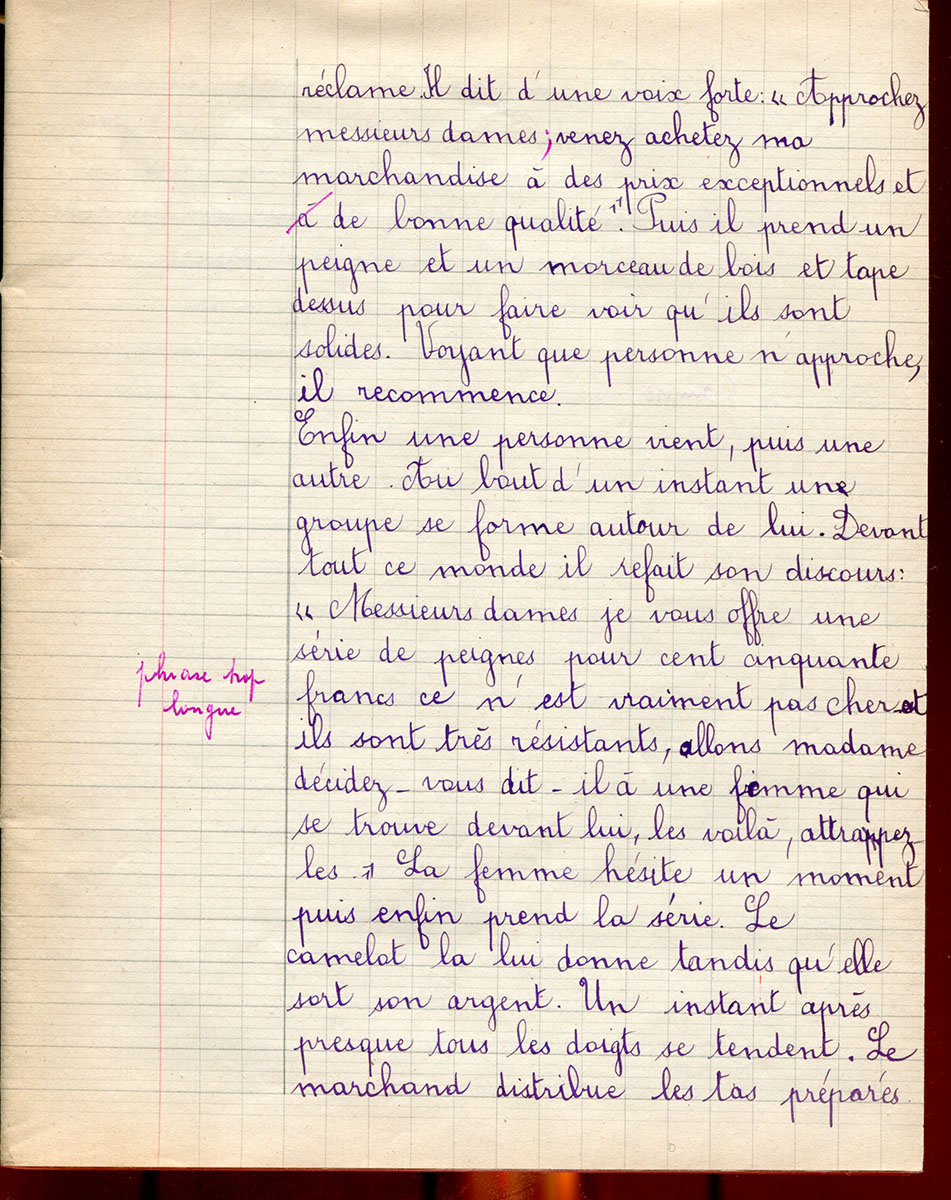 réclame. Il dit d'une voix forte: « Approchez
messieurs dames; venez achetez ma
marchandise à des prix exceptionnels et
à de bonne qualité ». Puis il prend un
peigne et un morceau de bois et tape
dessus pour faire voir qu'ils sont
solides. Voyant que personne n'approche,
il recommence.
Enfin une personne vient, puis une
autre. Au bout d'un instant une
groupe se forme autour de lui. Devant
tout ce monde il refait son discours:
« Messieurs dames je vous offre une
série de peignes pour cent cinquante
phrase trop
francs ce n'est vraiment pas cher et
longue
ils sont très résistants, allons madame
décidez-vous dit-il à une femme qui
se trouve devant lui, les voilà, attrappez
les » La femme hésite un moment
puis enfin prend la série. Le
camelot la lui donne tandis qu'elle
sort son argent. Un instant après
presque tous les doigts se tendent. Le
marchand distribue les tas préparés.